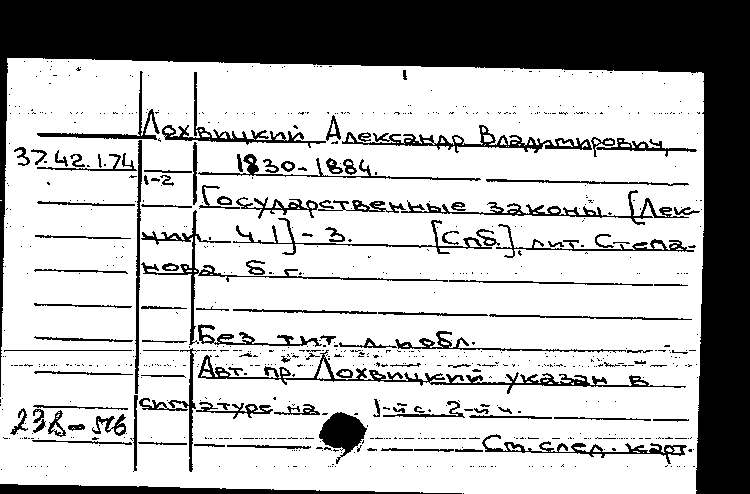 Лохвицкий, Александр Владимирович,
37.42.1.74 1830-1884.
1-2
Государственные законы. [Лек-
ции. Ч.1]-3. [Спб.], лит. Степа-
нова, б.г.
Без тит. л. и обл.
Авт. пр. Лохвицкий указан в
сигнатуре на 1-й с. 2-й ч.
23В-516
См. след. карт.